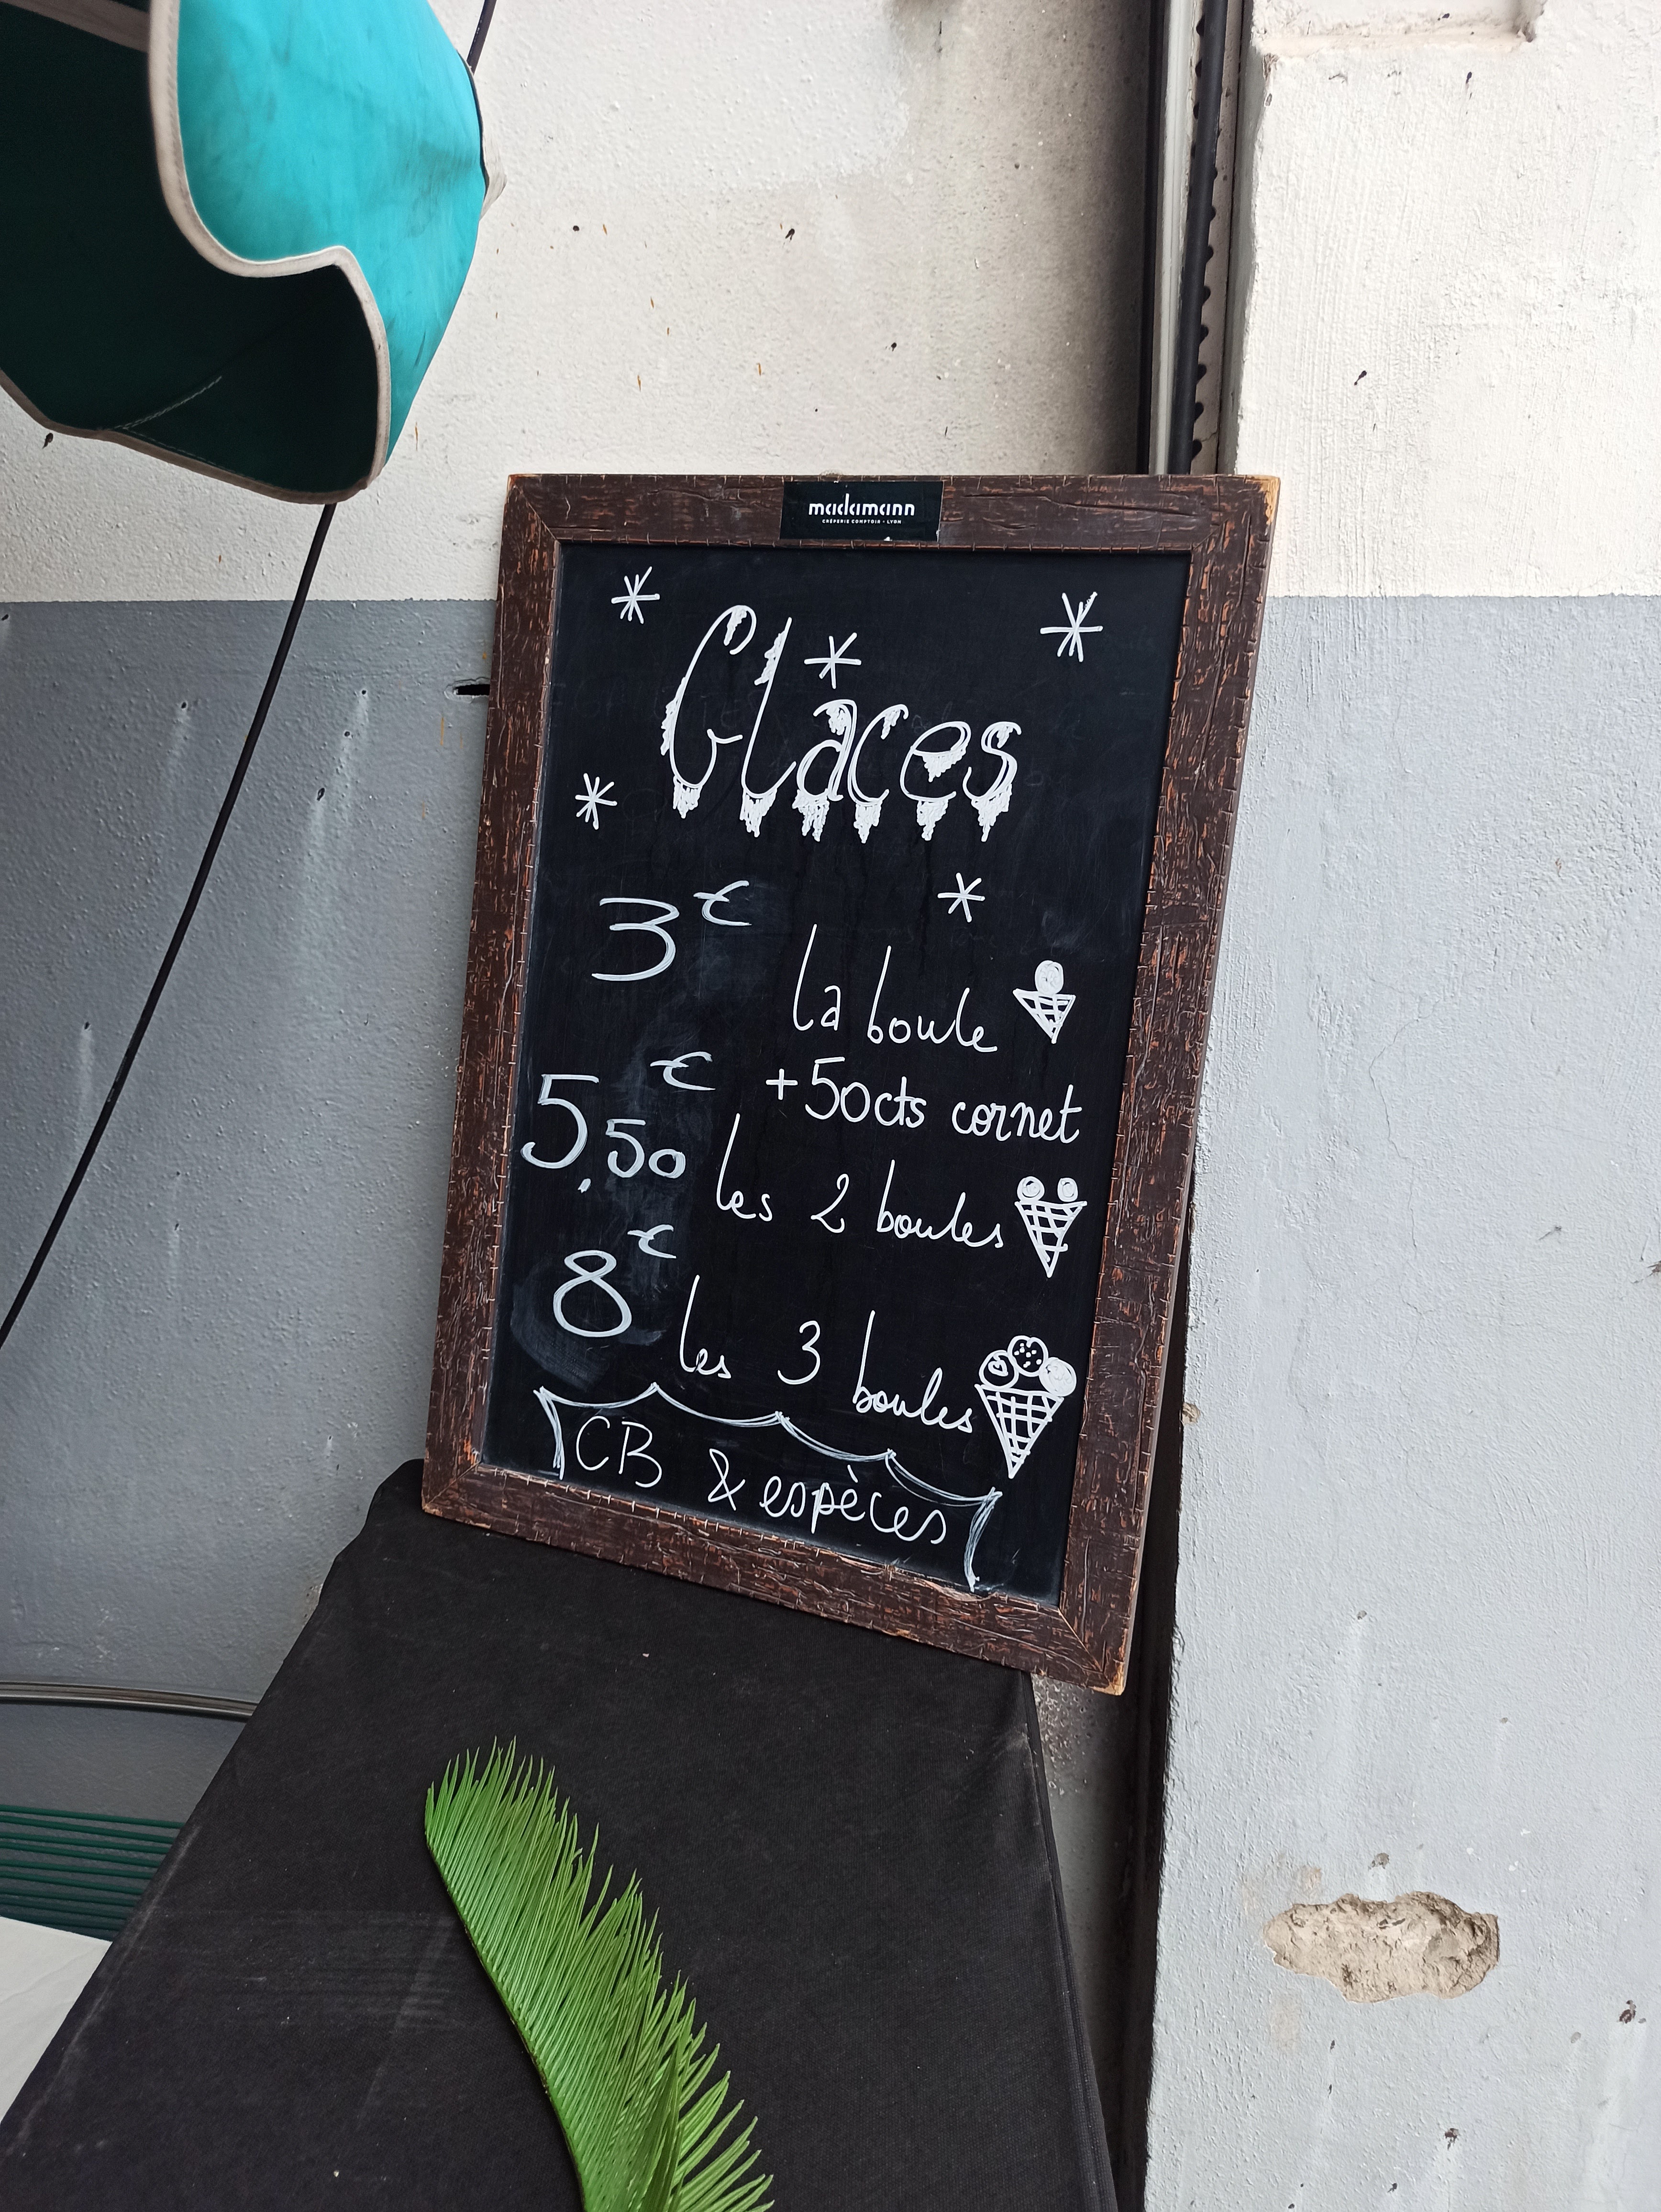 madamann
CRÊPERIE COMPTOIR • LYON
Glaces
3€ la boule
+50cts cornet
5,50€ les 2 boules
8€ les 3 boules
CB & espèces